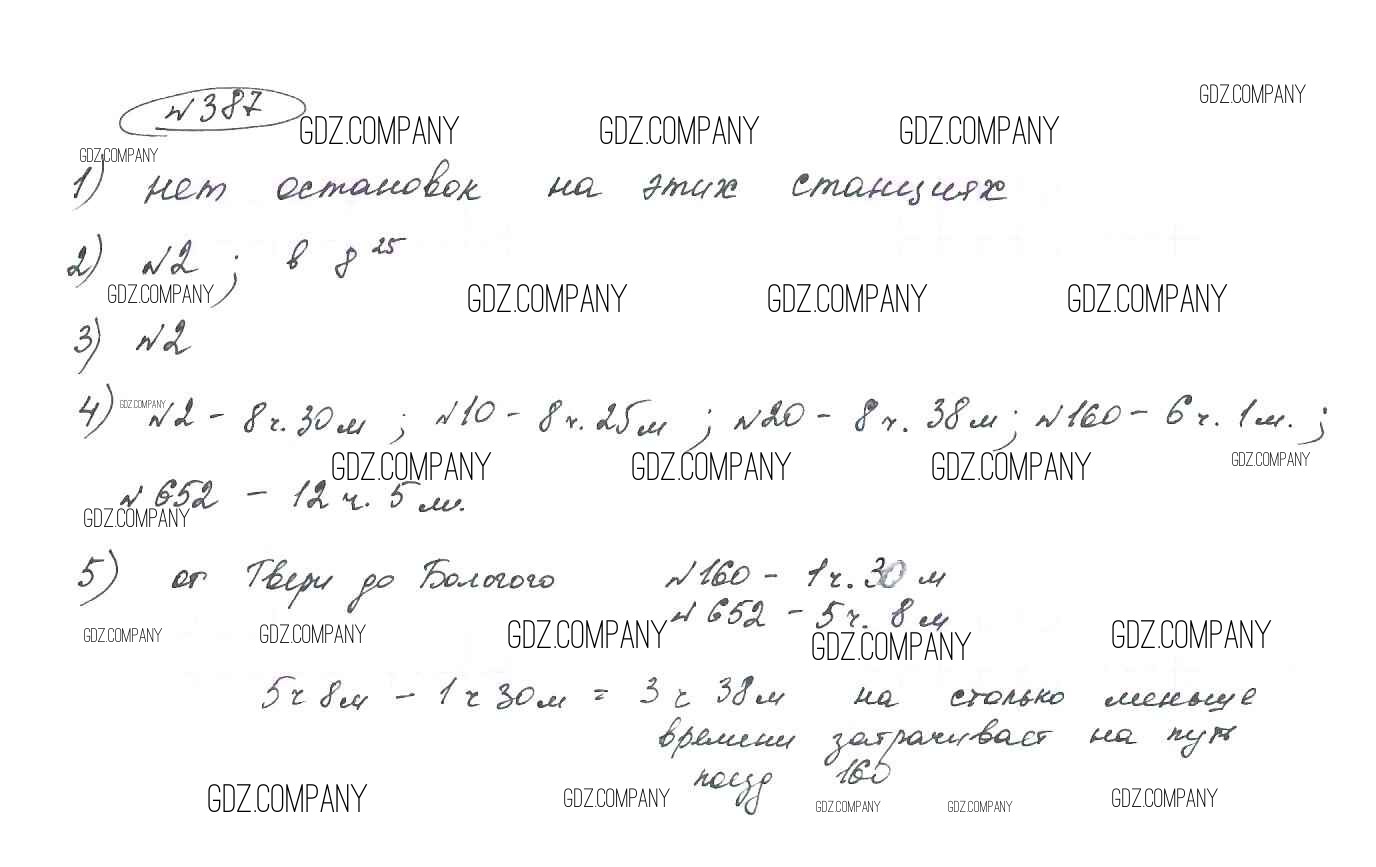 GDZ.COMPANY
№387
GDZ.COMPANY GDZ.COMPANY GDZ.COMPANY
GDZ.COMPANY
1) нет остановок на этих станциях
2) №2 ; в 8 25
GDZ.COMPANY GDZ.COMPANY GDZ.COMPANY GDZ.COMPANY
3) №2
4) GDZ.COMPANY №2 - 8 ч. 30 м ; №10 - 8 ч. 25 м ; №20 - 8 ч. 38 м ; №160 - 6 ч. 1 м. ;
GDZ.COMPANY GDZ.COMPANY GDZ.COMPANY GDZ.COMPANY
№652 - 12 ч. 5 м.
GDZ.COMPANY
5) от Твери до Бологого №160 - 1 ч. 30 м
№652 - 5 ч. 8 м
GDZ.COMPANY GDZ.COMPANY GDZ.COMPANY GDZ.COMPANY GDZ.COMPANY
5 ч 8 м - 1 ч 30 м = 3 ч 38 м на столько меньше
времени затрачивает на путь
поезд 160
GDZ.COMPANY GDZ.COMPANY GDZ.COMPANY GDZ.COMPANY GDZ.COMPANY